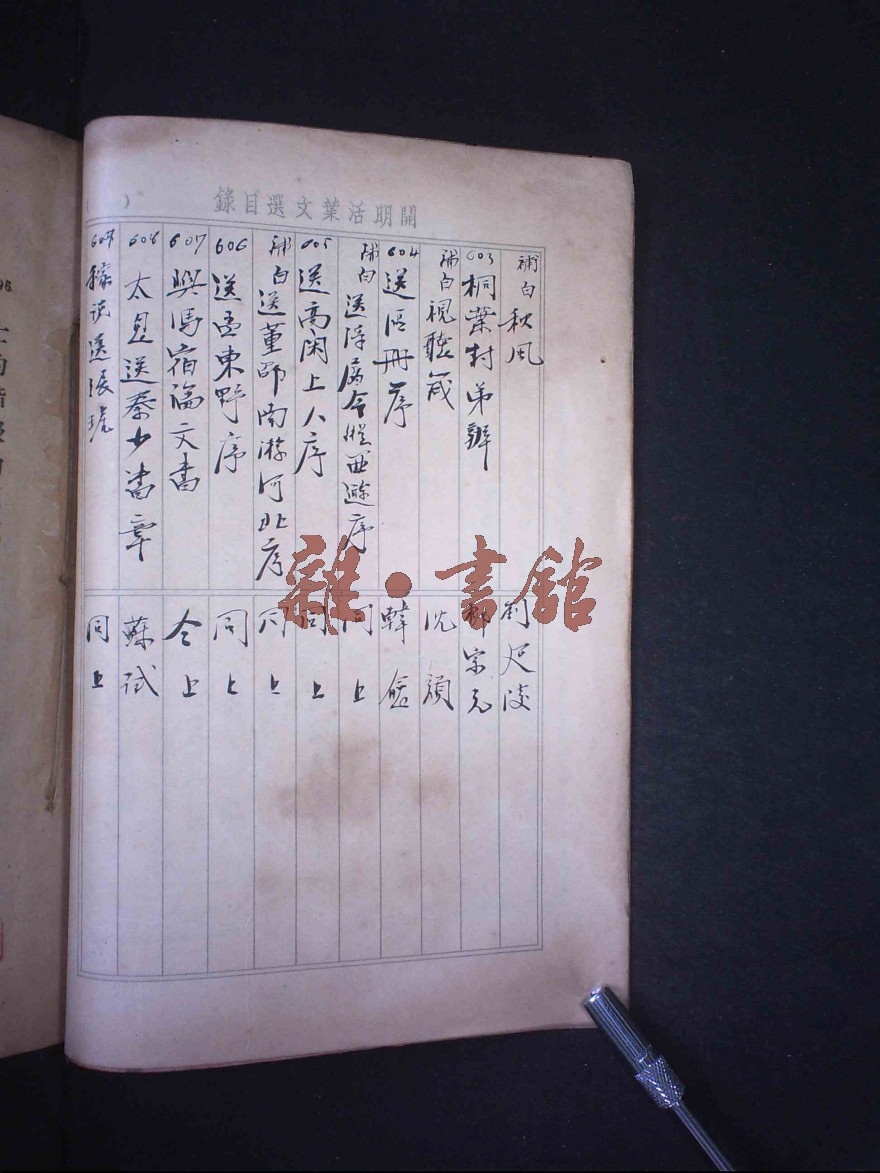 開明活葉文選目錄
( )
補白 秋風 劉次凌
603 桐葉封弟辨 柳宗元
補白 視聽箴 沈顏
604 送區冊序 韓愈
補白 送浮屠令縱西遊序 同上
605 送高閑上人序 同上
補白 送董邵南遊河北序 同上
606 送孟東野序 同上
607 與馮宿論文書 仝上
608 太息送秦少章 蘇軾
稼說送張琥 同上
雜·書館